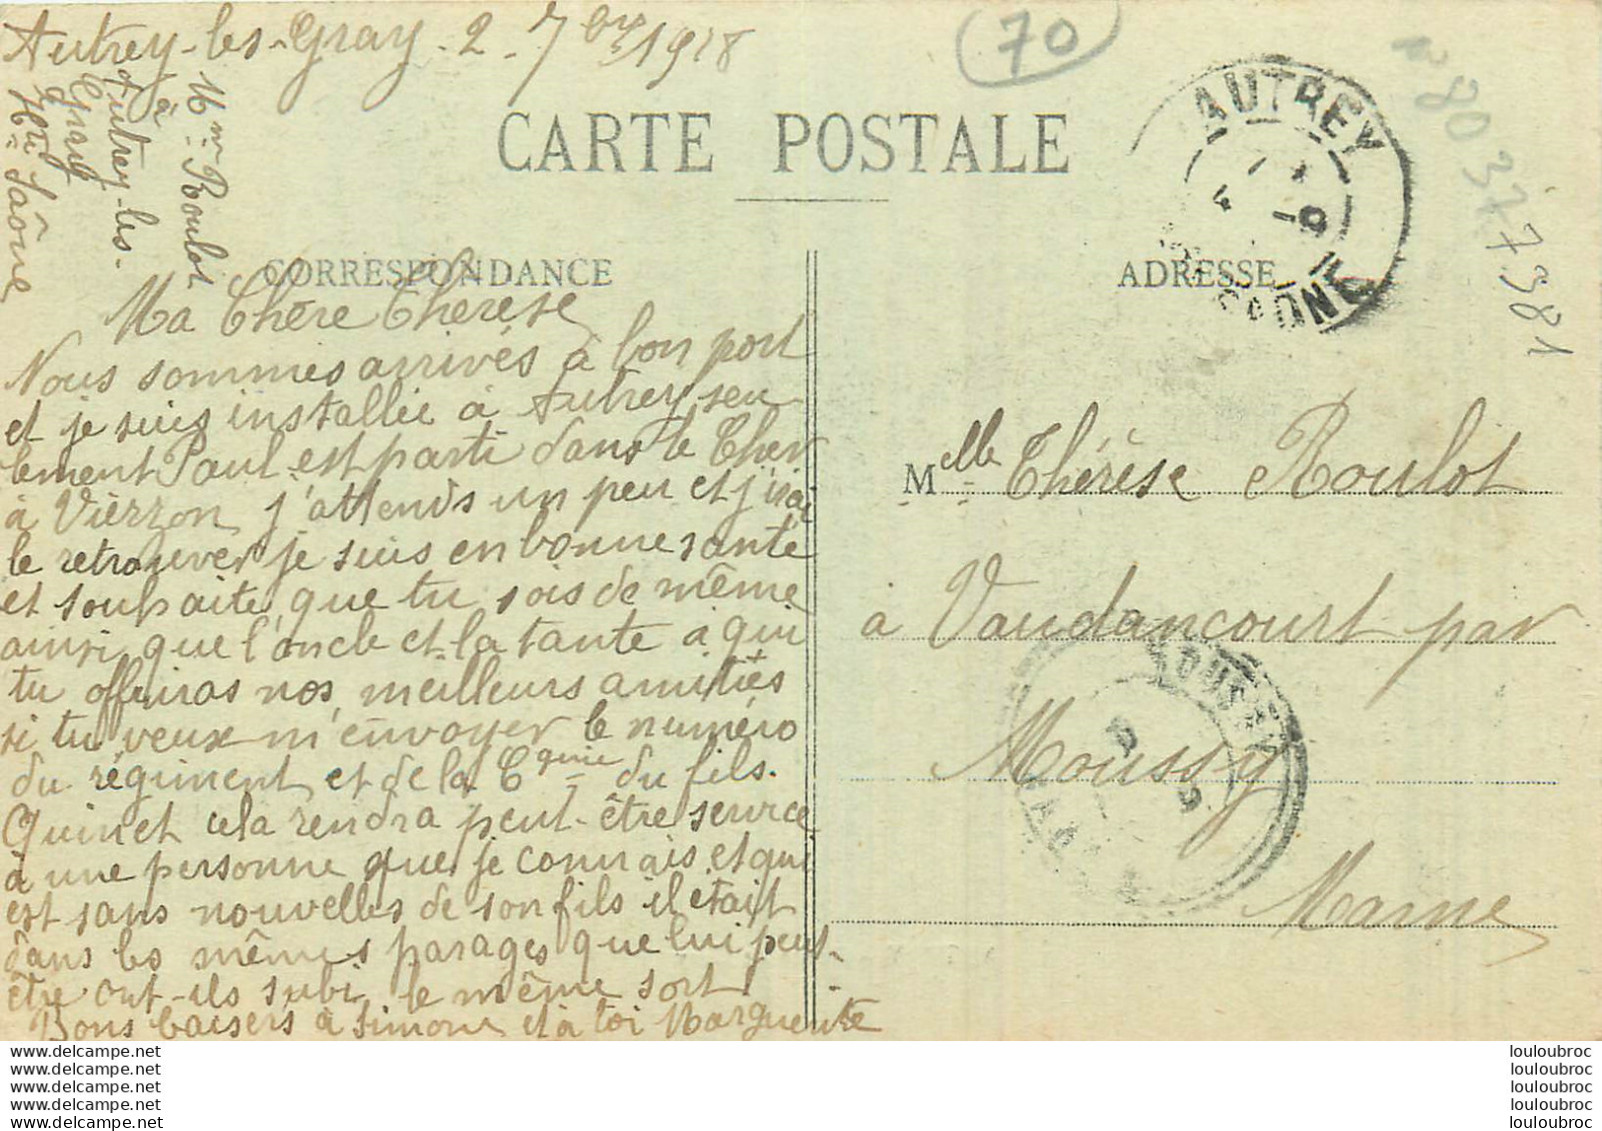 Autrey-les-Gray 2 7bre 1918
70
n° 80 37 7981
CARTE POSTALE
AUTREY
SAONE
Mme Roulot
à
Autrey-les-
Gray
Hte Saône
CORRESPONDANCE
ADRESSE
Ma Chère Therese
Nous sommes arrivés à bon port
et je suis installée à Autrey seu
lement Paul est parti dans le Cher
à Vierzon j'attends un peu et j'irai
le retrouver je suis en bonne sante
et souhaite que tu sois de même
ainsi que l'oncle et la tante à qui
tu offriras nos meilleurs amitiés
si tu veux m'envoyer le numéro
du régiment et de la Cgnie du fils.
Quinet cela rendra peut-être service
à une personne que je connais et qui
est sans nouvelles de son fils il était
dans les mêmes parages que lui peut-
être ont-ils subi le même sort
Bons baisers à Simone et à toi Marguerite
Melle Thérèse Roulot
à Vaudancourt par
Moussy
Marne
www.delcampe.net
www.delcampe.net
www.delcampe.net
www.delcampe.net
www.delcampe.net
louloubroc
louloubroc
louloubroc
louloubroc
louloubroc